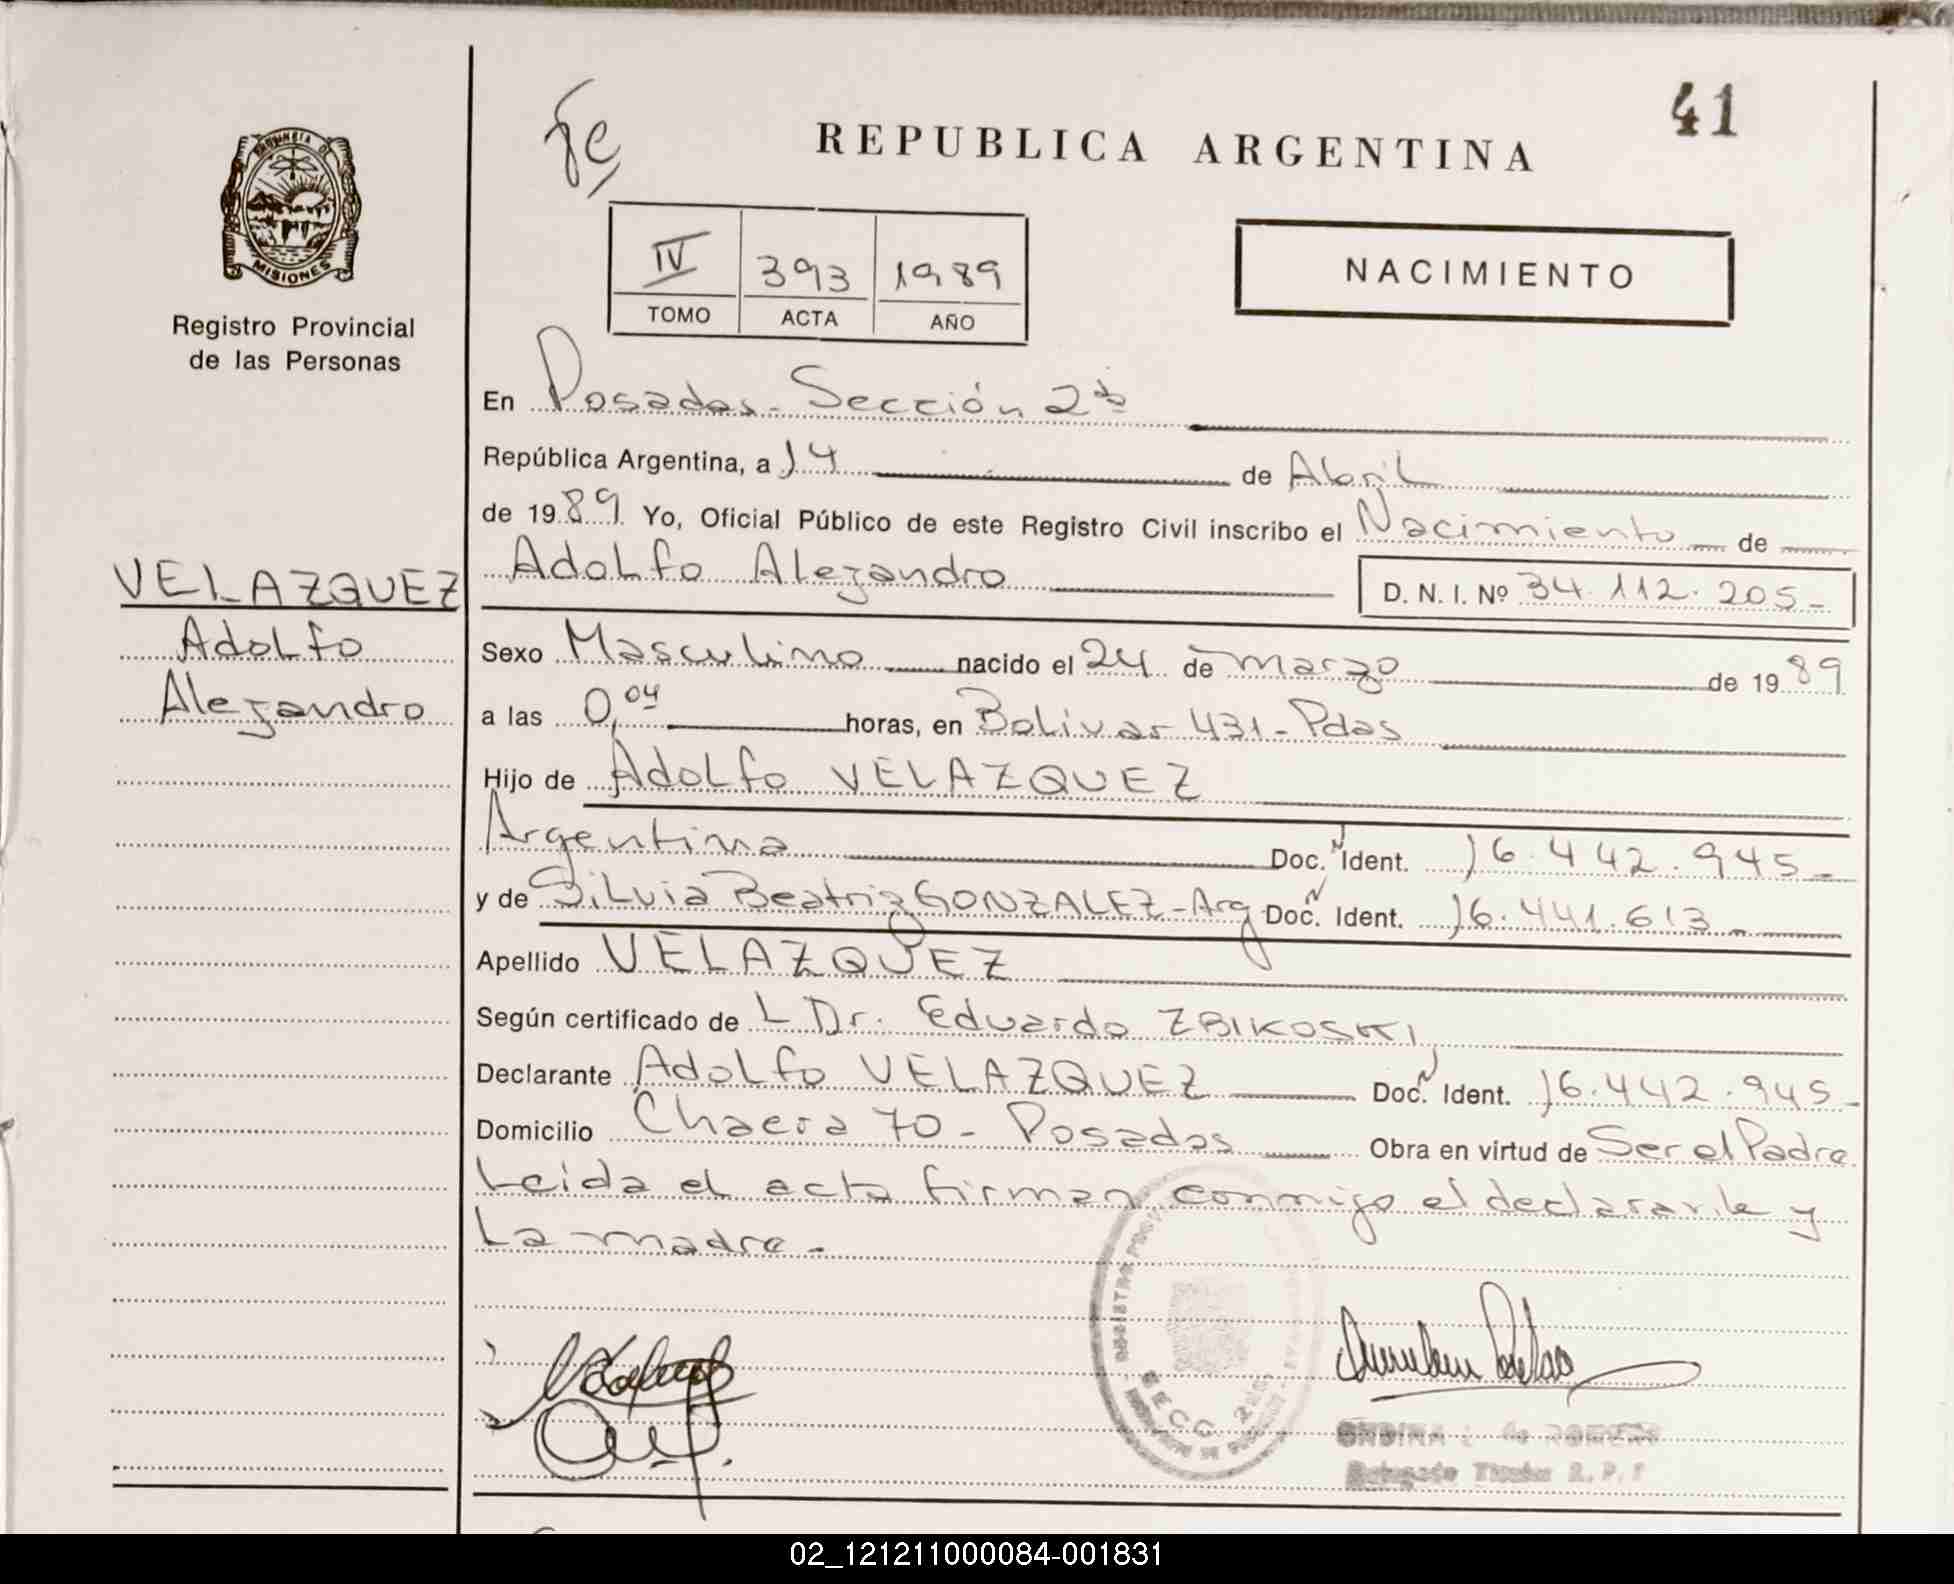 41
REPUBLICA ARGENTINA
PROVINCIA DE
MISIONES
Registro Provincial
de las Personas
IV 393 1989
TOMO ACTA AÑO
NACIMIENTO
En Posadas - Sección 2da
República Argentina, a 14 de Abril
de 1989 Yo, Oficial Público de este Registro Civil inscribo el Nacimiento de
VELAZQUEZ
Adolfo
Alejandro
Adolfo Alejandro D. N. I. Nº 34.112.205-
Sexo Masculino nacido el 24 de marzo de 1989
a las 0,04 horas, en Bolivar 431 - Pdas
Hijo de Adolfo VELAZQUEZ
Argentina Doc. Ident. 16.442.945-
y de Silvia Beatriz GONZALEZ - Arg Doc. Ident. 16.441.613-
Apellido VELAZQUEZ
Según certificado de L Dr. Eduardo ZBIKOSKI
Declarante Adolfo VELAZQUEZ Doc. Ident. 16.442.945-
Domicilio Chacra 70 - Posadas Obra en virtud de Ser el Padre
Leida el acta firman conmigo el declarante y
La madre -
SECC. 2
02_121211000084-001831